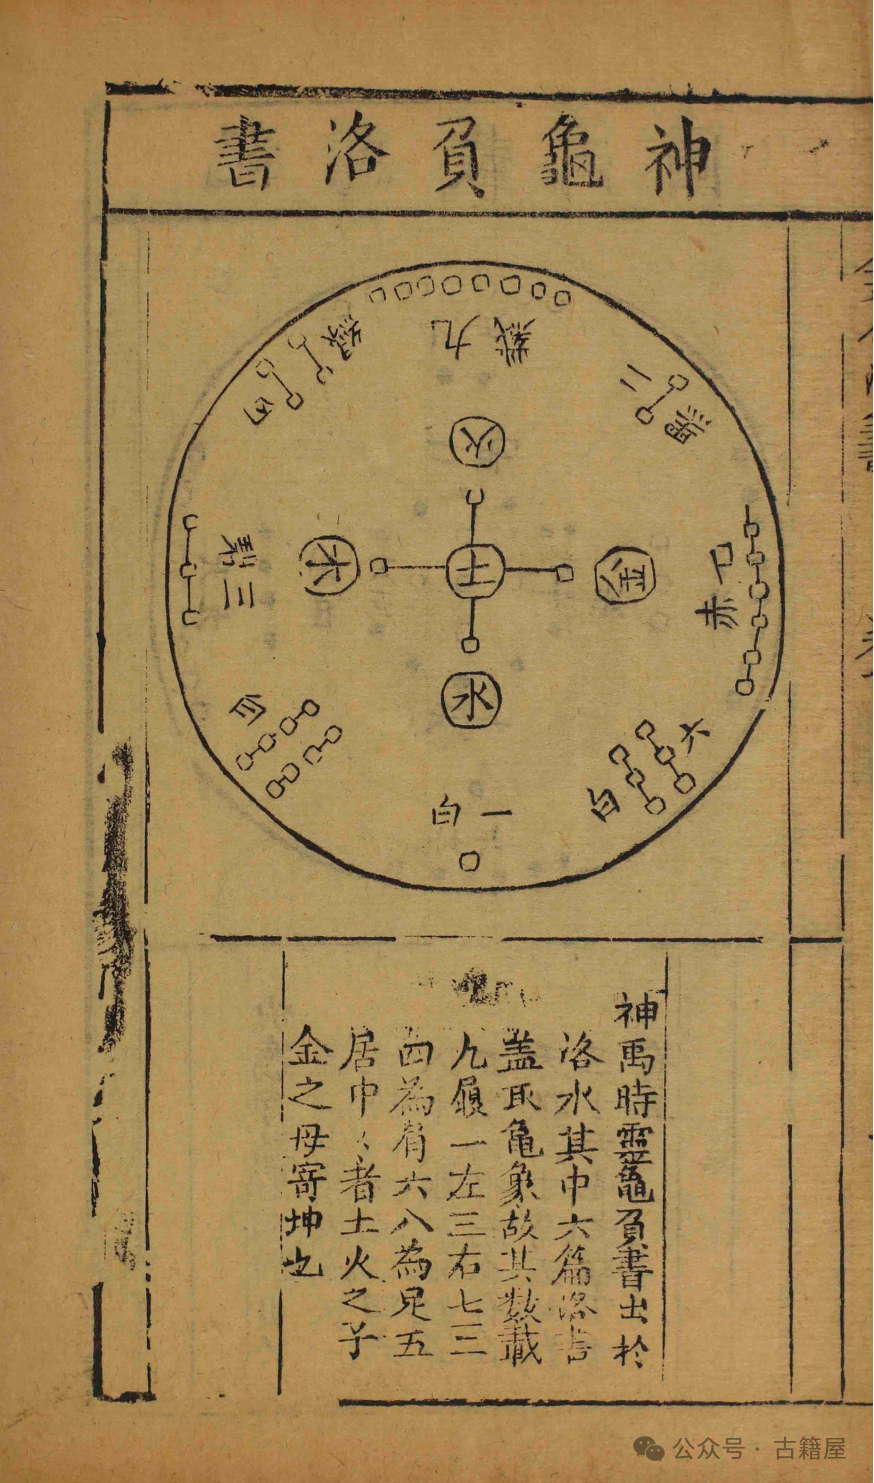 神龜負洛書
戴九
二黑
七赤
六白
一白
白
三碧
四
綠
火
木
土
金
水
神禹時靈龜負書出於
洛水其中六篇洛書
盖取龜象故其數戴
九履一左三右七三
四為肩六八為足五
居中〻者土火之子
金之母寄坤也
公众号·古籍屋